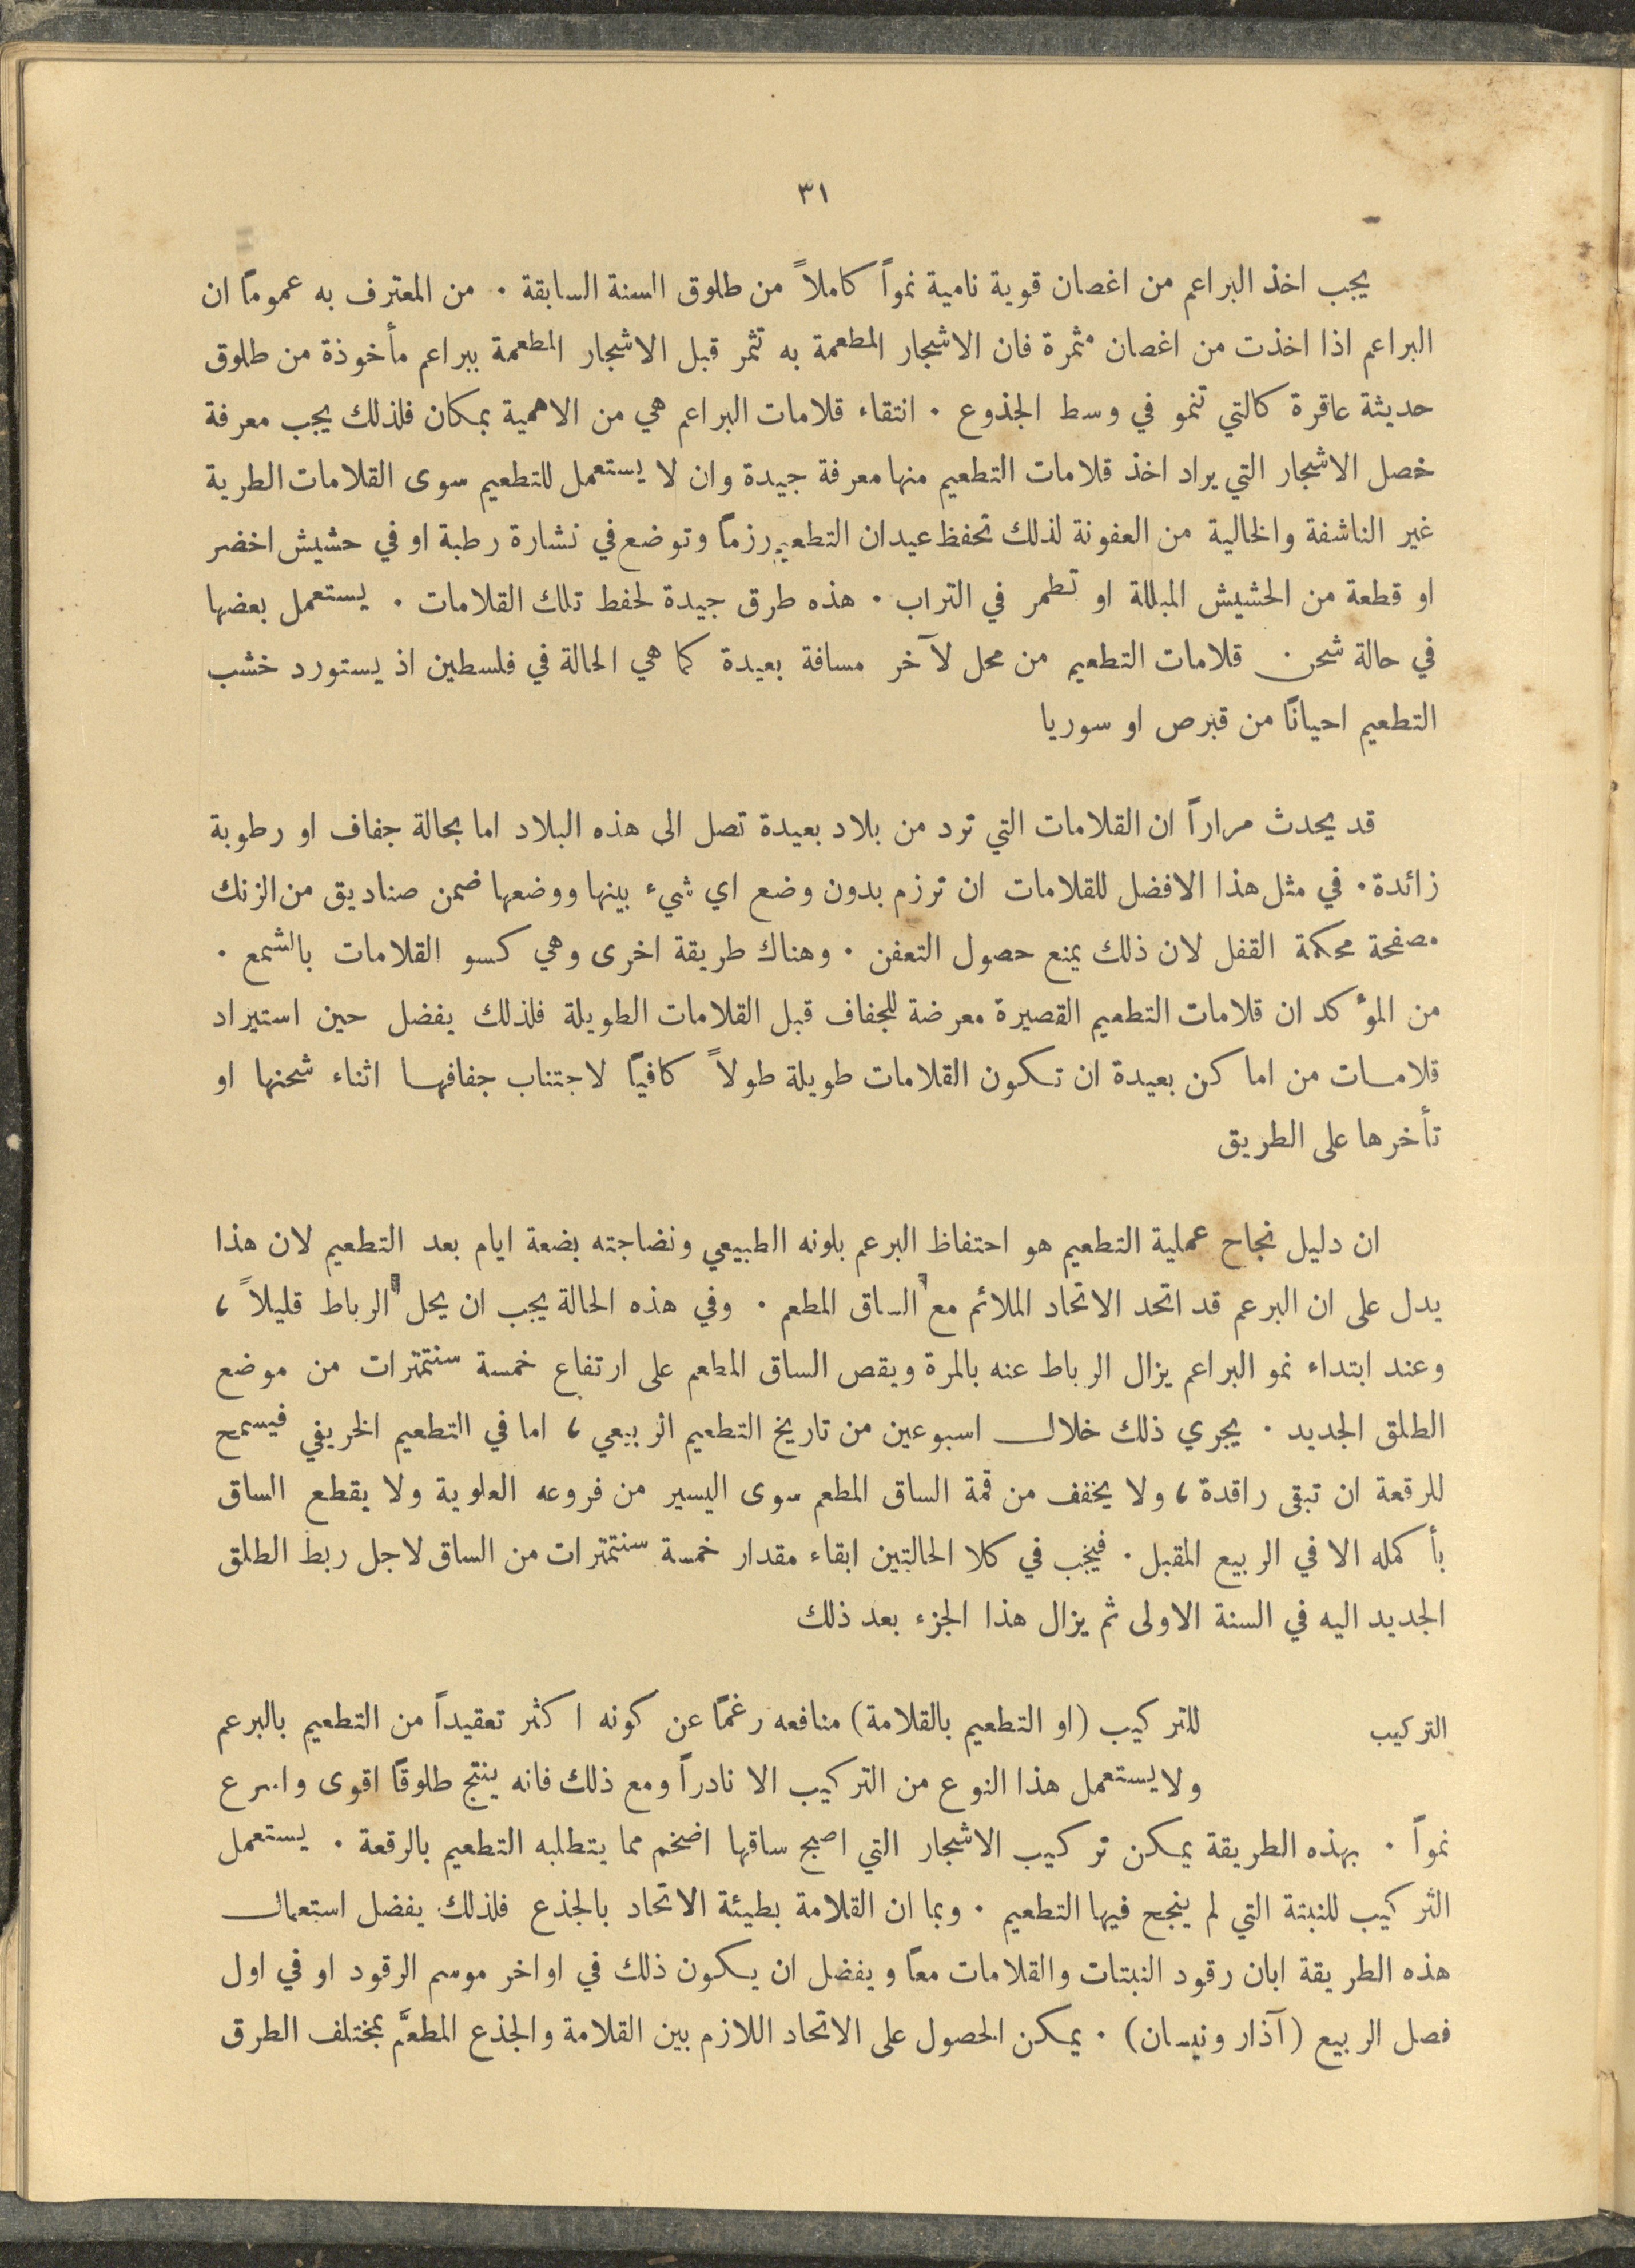 ٣١
يجب اخذ البراعم من اغصان قوية نامية نمواً كاملاً من طلوق السنة السابقة . من المعترف به عموماً ان
البراعم اذا اخذت من اغصان مثمرة فان الاشجار المطعمة به تثمر قبل الاشجار المطعمة ببراعم مأخوذة من طلوق
حديثة عاقرة كالتي تنمو في وسط الجذوع . انتقاء قلامات البراعم هي من الاهمية بمكان فلذلك يجب معرفة
خصل الاشجار التي يراد اخذ قلامات التطعيم منها معرفة جيدة وان لا يستعمل للتطعيم سوى القلامات الطرية
غير الناشفة والخالية من العفونة لذلك تحفظ عيدان التطعيم رزماً وتوضع في نشارة رطبة او في حشيش اخضر
او قطعة من الحشيش المبللة او تطمر في التراب . هذه طرق جيدة لحفظ تلك القلامات . يستعمل بعضها
في حالة شحن قلامات التطعيم من محل لآخر مسافة بعيدة كما هي الحالة في فلسطين اذ يستورد خشب
التطعيم احياناً من قبرص او سوريا
قد يحدث مراراً ان القلامات التي ترد من بلاد بعيدة تصل الى هذه البلاد اما بحالة جفاف او رطوبة
زائدة . في مثل هذا الافضل للقلامات ان ترزم بدون وضع اي شيء بينها ووضعها ضمن صناديق من الزنك
مصفحة محكمة القفل لان ذلك يمنع حصول التعفن . وهناك طريقة اخرى وهي كسو القلامات بالشمع .
من المؤكد ان قلامات التطعيم القصيرة معرضة للجفاف قبل القلامات الطويلة فلذلك يفضل حين استيراد
قلامات من اماكن بعيدة ان تكون القلامات طويلة طولاً كافياً لاجتناب جفافها اثناء شحنها او
تأخرها على الطريق
ان دليل نجاح عملية التطعيم هو احتفاظ البرعم بلونه الطبيعي ونضاجته بضعة ايام بعد التطعيم لان هذا
يدل على ان البرعم قد اتحد الاتحاد الملائم مع الساق المطعم . وفي هذه الحالة يجب ان يحل الرباط قليلاً ،
وعند ابتداء نمو البراعم يزال الرباط عنه بالمرة ويقص الساق المطعم على ارتفاع خمسة سنتمترات من موضع
الطلق الجديد . يجري ذلك خلال اسبوعين من تاريخ التطعيم الربيعي ، اما في التطعيم الخريفي فيسمح
للرقعة ان تبقى راقدة ، ولا يخفف من قمة الساق المطعم سوى اليسير من فروعه العلوية ولا يقطع الساق
بأكمله الا في الربيع المقبل . فيجب في كلا الحالتين ابقاء مقدار خمسة سنتمترات من الساق لاجل ربط الطلق
الجديد اليه في السنة الاولى ثم يزال هذا الجزء بعد ذلك
التركيب للتركيب (او التطعيم بالقلامة) منافعه رغماً عن كونه اكثر تعقيداً من التطعيم بالبرعم
ولا يستعمل هذا النوع من التركيب الا نادراً ومع ذلك فانه ينتج طلوقاً اقوى واسرع
نمواً . بهذه الطريقة يمكن تركيب الاشجار التي اصبح ساقها اضخم مما يتطلبه التطعيم بالرقعة . يستعمل
التركيب للنبتة التي لم ينجح فيها التطعيم . وبما ان القلامة بطيئة الاتحاد بالجذع فلذلك يفضل استعمال
هذه الطريقة ابان رقود النبتات والقلامات معاً ويفضل ان يكون ذلك في اواخر موسم الرقود او في اول
فصل الربيع (آذار ونيسان) . يمكن الحصول على الاتحاد اللازم بين القلامة والجذع المطعَّم بمختلف الطرق